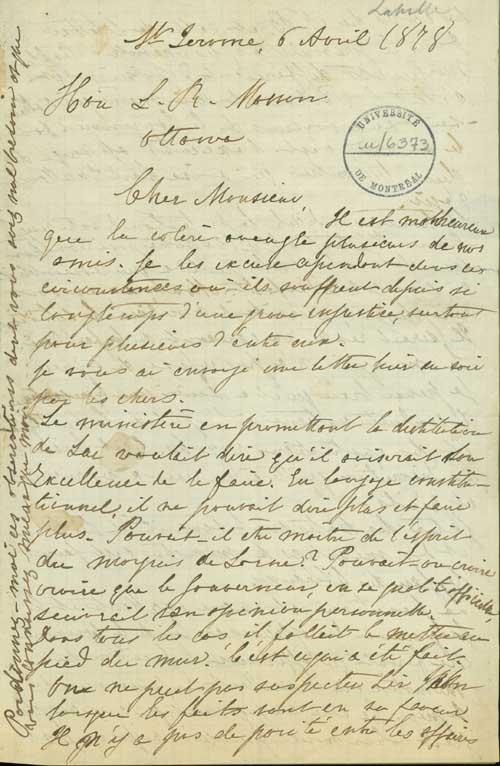 Labelle
St Jerome, 6 Avril 1878
Hon L. R. Masson
Ottawa
UNIVERSITÉ
u/6373
DE MONTRÉAL
Cher Monsieur,
Il est malheureux
que la colère aveugle plusieurs de nos
amis. Je les excuse cependant dans ces
circonstances où ils souffrent depuis si
longtemps d'une grave injustice, surtout
pour plusieurs d'entre eux.
Je vous ai envoyé une lettre hier au soir
par les chars.
Le ministère en promettant la destitution
de Luc voulait dire qu'il aviserait Son
Excellence de le faire. En langage constitu-
tionnel, il ne pouvait dire plus et faire
plus. Pouvait-il être maître de l'esprit
du marquis de Lorne? Pouvait-on croire
croire que le Gouverneur, en sa qualité officielle,
suivrait son opinion personnelle.
Dans tous les cas, il fallait le mettre au
pied du mur. C'est ce qui a été fait.
On ne peut pas suspecter Sir John
lorsque les faits sont en sa faveur
Il n'y a pas de parité entre les affaires
Pardonnez-moi ces observations dont vous avez nul besoin et que
vous connaissez mieux que moi